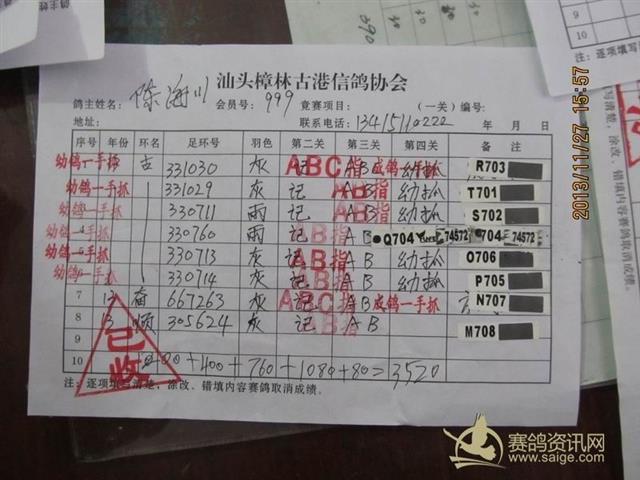 9
10
注：逐项填
汕头樟林古港信鸽协会
鸽主姓名： 陈海川 会员号： 999 竟赛项目： （一关）编号：
地址： 联系电话： 13415110222 年 月 日
序号 年份 环名 足环号 羽色 第二关 第三关 第四关 备注
幼鸽一手抓 古 331030 灰 记 ABC指 AB 成鸽一手抓 R703
幼鸽一手抓 331029 灰 记 AB指 AB 幼抓 T701
幼鸽一手抓 330711 雨 记 AB指 AB 幼抓 S702
幼鸽一手抓 330760 雨 记 AB指 AB Q704 74572 704 74572
幼鸽一手抓 330713 灰 记 AB指 AB 幼抓 O706
幼鸽一手抓 330714 灰 记 AB指 AB 幼抓 P705
7 667263 灰 记 ABC指 AB 成鸽一手抓 N707
8 13 305624 灰 记 AB指 AB M708
9
10 +400+760+1080+80=3520
已收
注：逐项填写清楚，涂改、错填内容赛鸽取消成绩。
2013/11/27 15:57
赛鸽资讯网
www.saige.com